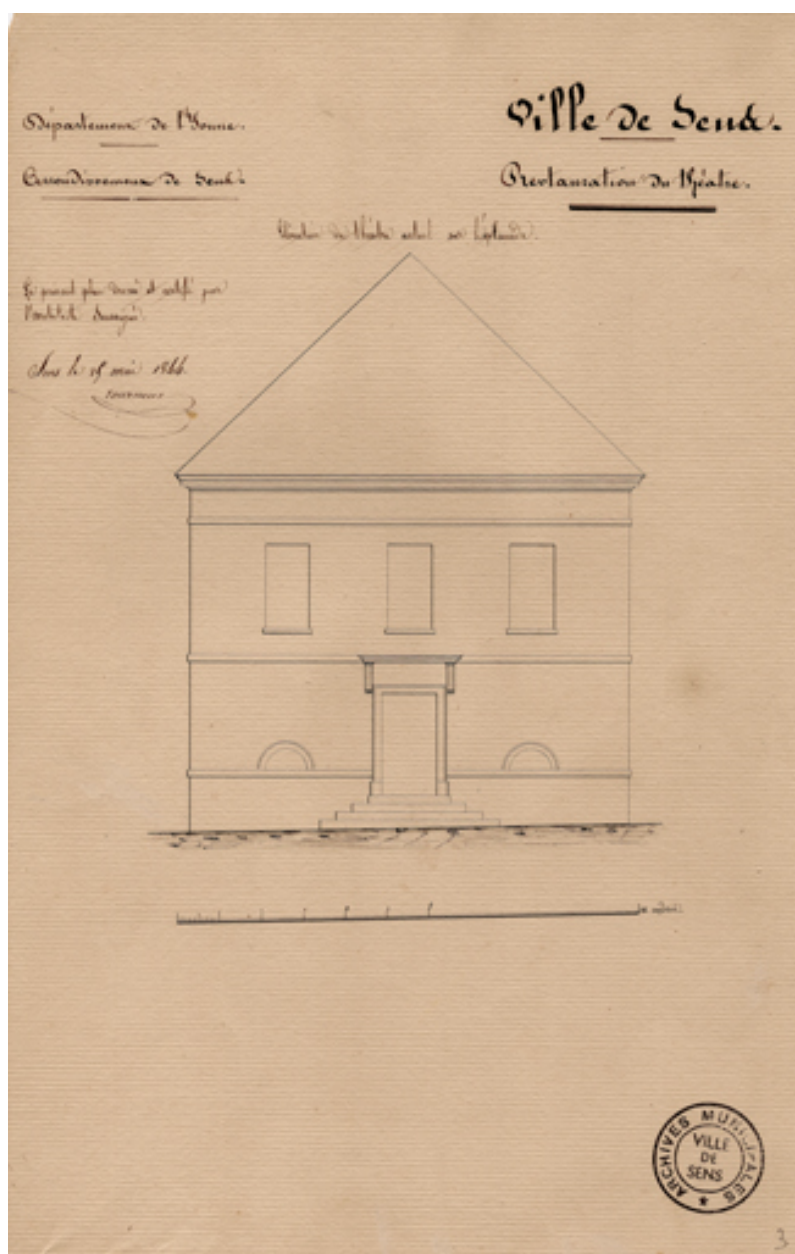 Département de l'Yonne.
Arrondissement de Sens.
Ville de Sens.
Restauration du théâtre.
Elévation du théâtre actuel sur l'esplanade.
Le présent plan dressé et certifié par
l'architecte soussigné.
Sens le 15 mai 1844.
ARCHIVES MUNICIPALES
VILLE
DE
SENS
3